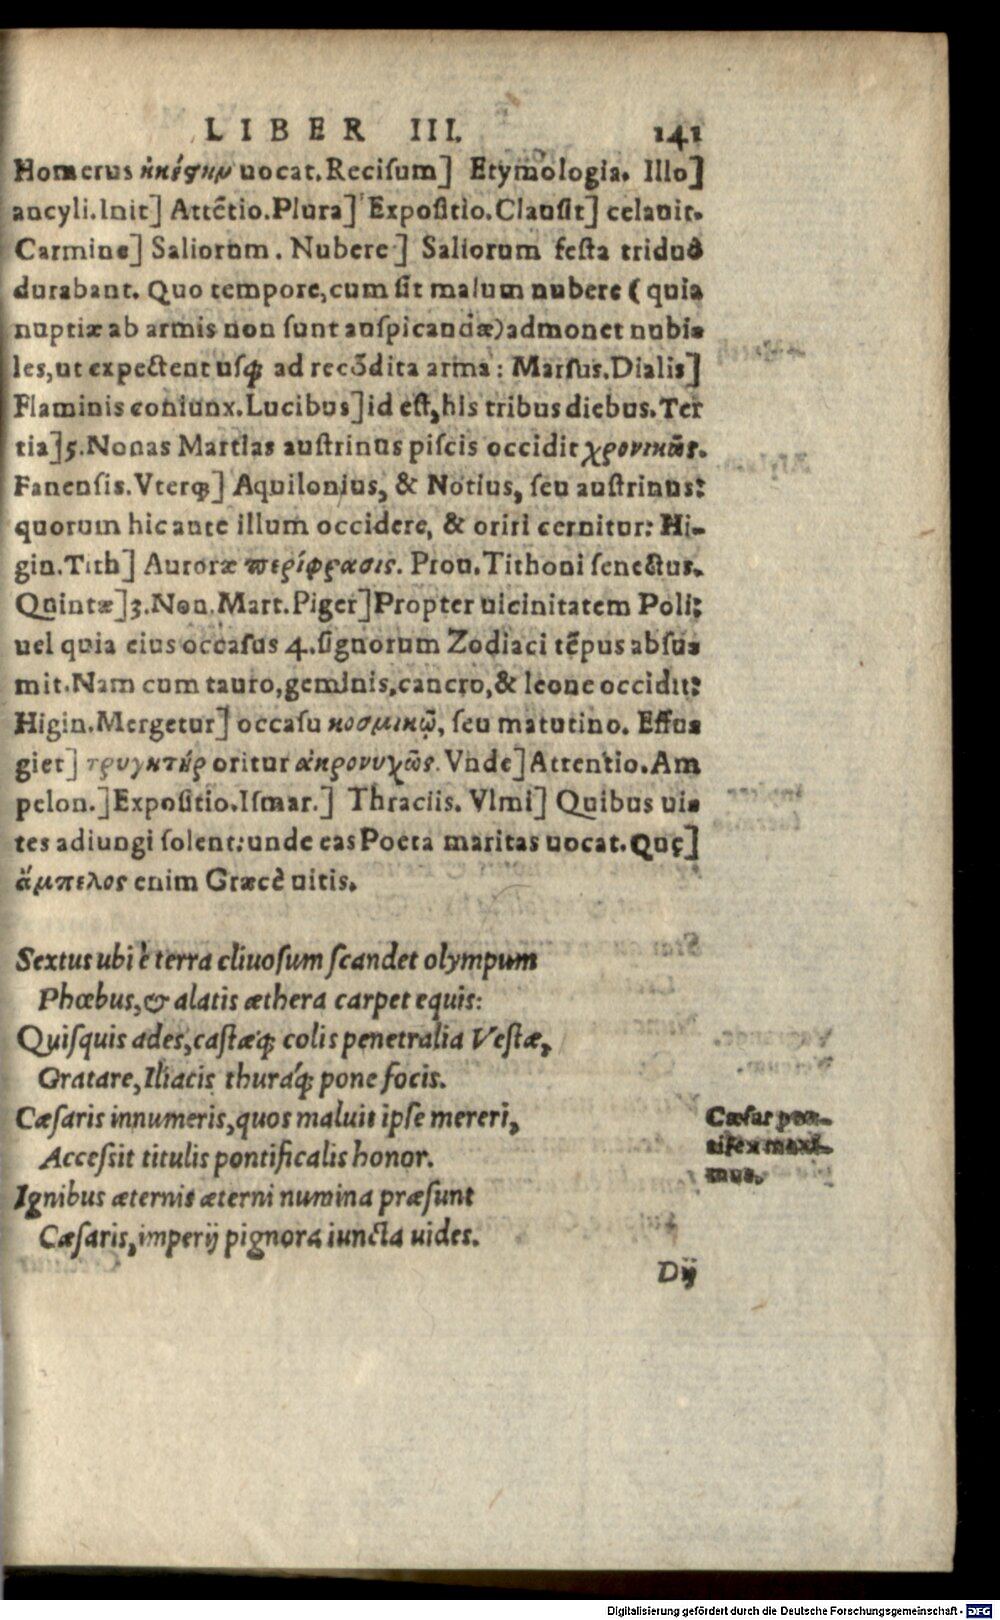 LIBER III. 141
Homerus ἀκέςην uocat. Recisum] Etymologia. Illo]
ancyli. Init] Attētio. Plura] Expositio. Clausit] celauit.
Carmine] Saliorum. Nubere] Saliorum festa triduò
durabant. Quo tempore, cum sit malum nubere (quia
nuptiæ ab armis non sunt auspicandæ) admonet nubi-
les, ut expectent usq; ad recōdita arma: Marsus. Dialis]
Flaminis coniunx. Lucibus] id est, his tribus diebus. Ter
tia] 5. Nonas Martias austrinus piscis occidit χρονικῶς.
Fanensis. Vterq;] Aquilonius, & Notius, seu austrinus:
quorum hic ante illum occidere, & oriri cernitur: Hi-
gin. Tith] Auroræ περίφρασις. Prou. Tithoni senectus.
Quintæ] 3. Non. Mart. Piger] Propter uicinitatem Poli:
uel quia eius occasus 4. signorum Zodiaci tēpus absu-
mit. Nam cum tauro, geminis, cancro, & leone occidit:
Higin. Mergetur] occasu κοσμικῷ, seu matutino. Effu-
giet] τρυγητήρ oritur ἀκρονυχῶς. Vnde] Attentio. Am
pelon.] Expositio. Ismar.] Thraciis. Vlmi] Quibus ui-
tes adiungi solent: unde eas Poeta maritas uocat. Quę]
ἄμπελος enim Græcè uitis.
Sextus ubi è terra cliuosum scandet olympum
Phœbus, & alatis æthera carpet equis:
Quisquis ades, castæq́; colis penetralia Vestæ,
Gratare, Iliacis thuráq́; pone focis.
Cæsaris innumeris, quos maluit ipse mereri,
Accessit titulis pontificalis honor.
Ignibus æternis æterni numina præsunt
Cæsaris, imperij pignora iuncta uides.
Cæsar pon-
tifex maxi-
mus.
Dij
Digitalisierung gefördert durch die Deutsche Forschungsgemeinschaft - DFG